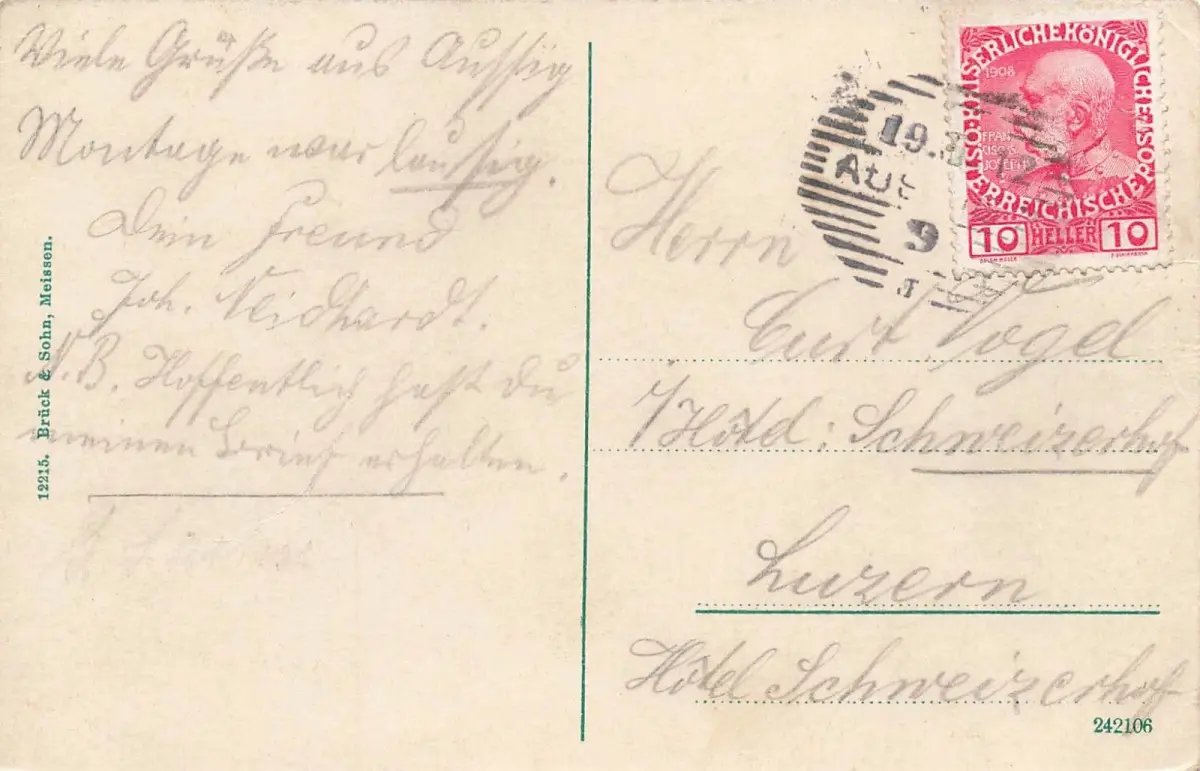 Viele Grüße aus Aussig
Montage war laussig.
Dein Freund
Joh. Neidhardt.
N.B. Hoffentlich hast du
meinen Brief erhalten.
12215. Brück & Sohn, Meissen.
KAISERLICHE KÖNIGLICHE ÖSTERREICHISCHE POST
1908
FRANCISCUS JOSEPH I
10 HELLER 10
19. 12
AUS
9
Herrn
Curt Vogel
Hôtel: Schweizerhof
Luzern
Hôtel Schweizerhof
242106